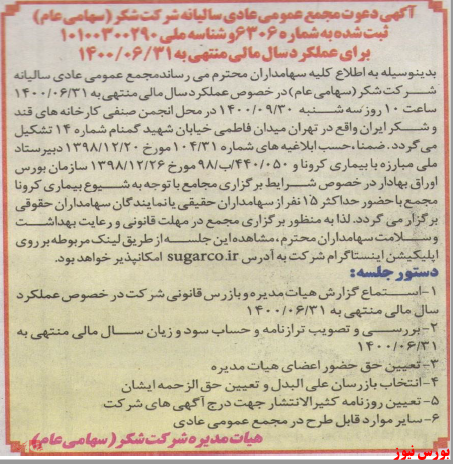 آگهی دعوت مجمع عمومی عادی سالیانه شرکت شکر (سهامی عام)
ثبت شده به شماره ۶۳۰۶ و شناسه ملی ۱۰۱۰۰۳۰۰۲۹۰
برای عملکرد سال مالی منتهی به ۱۴۰۰/۰۶/۳۱
بدینوسیله به اطلاع کلیه سهامداران محترم می رساند مجمع عمومی عادی سالیانه
شرکت شکر (سهامی عام) در خصوص عملکرد سال مالی منتهی به ۱۴۰۰/۰۶/۳۱
ساعت ۱۰ روز سه شنبه ۱۴۰۰/۰۹/۳۰ در محل انجمن صنفی کارخانه های قند
و شکر ایران واقع در تهران میدان فاطمی خیابان شهید گمنام شماره ۱۴ تشکیل
می گردد. ضمنا، حسب ابلاغیه های شماره ۱۰۴/۳۱ مورخ ۱۳۹۸/۱۲/۲۰ دبیرستاد
ملی مبارزه با بیماری کرونا و ۴۴۰/۰۵۰/ب/۹۸ مورخ ۱۳۹۸/۱۲/۲۶ سازمان بورس
اوراق بهادار در خصوص شرایط برگزاری مجامع با توجه به شیوع بیماری کرونا
مجمع با حضور حداکثر ۱۵ نفر از سهامداران حقیقی یا نمایندگان سهامداران حقوقی
برگزار می گردد. لذا به منظور برگزاری مجمع در مهلت قانونی و رعایت بهداشت
و سلامت سهامداران محترم، مشاهده این جلسه از طریق لینک مربوطه بر روی
اپلیکیشن اینستاگرام شرکت به آدرس sugarco.ir امکانپذیر خواهد بود.
دستور جلسه:
۱-استماع گزارش هیات مدیره و بازرس قانونی شرکت در خصوص عملکرد
سال مالی منتهی به ۱۴۰۰/۰۶/۳۱
۲-بررسی و تصویب ترازنامه و حساب سود و زیان سال مالی منتهی به
۱۴۰۰/۰۶/۳۱
۳-تعیین حق حضور اعضای هیات مدیره
۴-انتخاب بازرسان علی البدل و تعیین حق الزحمه ایشان
۵-تعیین روزنامه کثیرالانتشار جهت درج آگهی های شرکت
۶-سایر موارد قابل طرح در مجمع عمومی عادی
هیات مدیره شرکت شکر (سهامی عام)
بورس نیوز